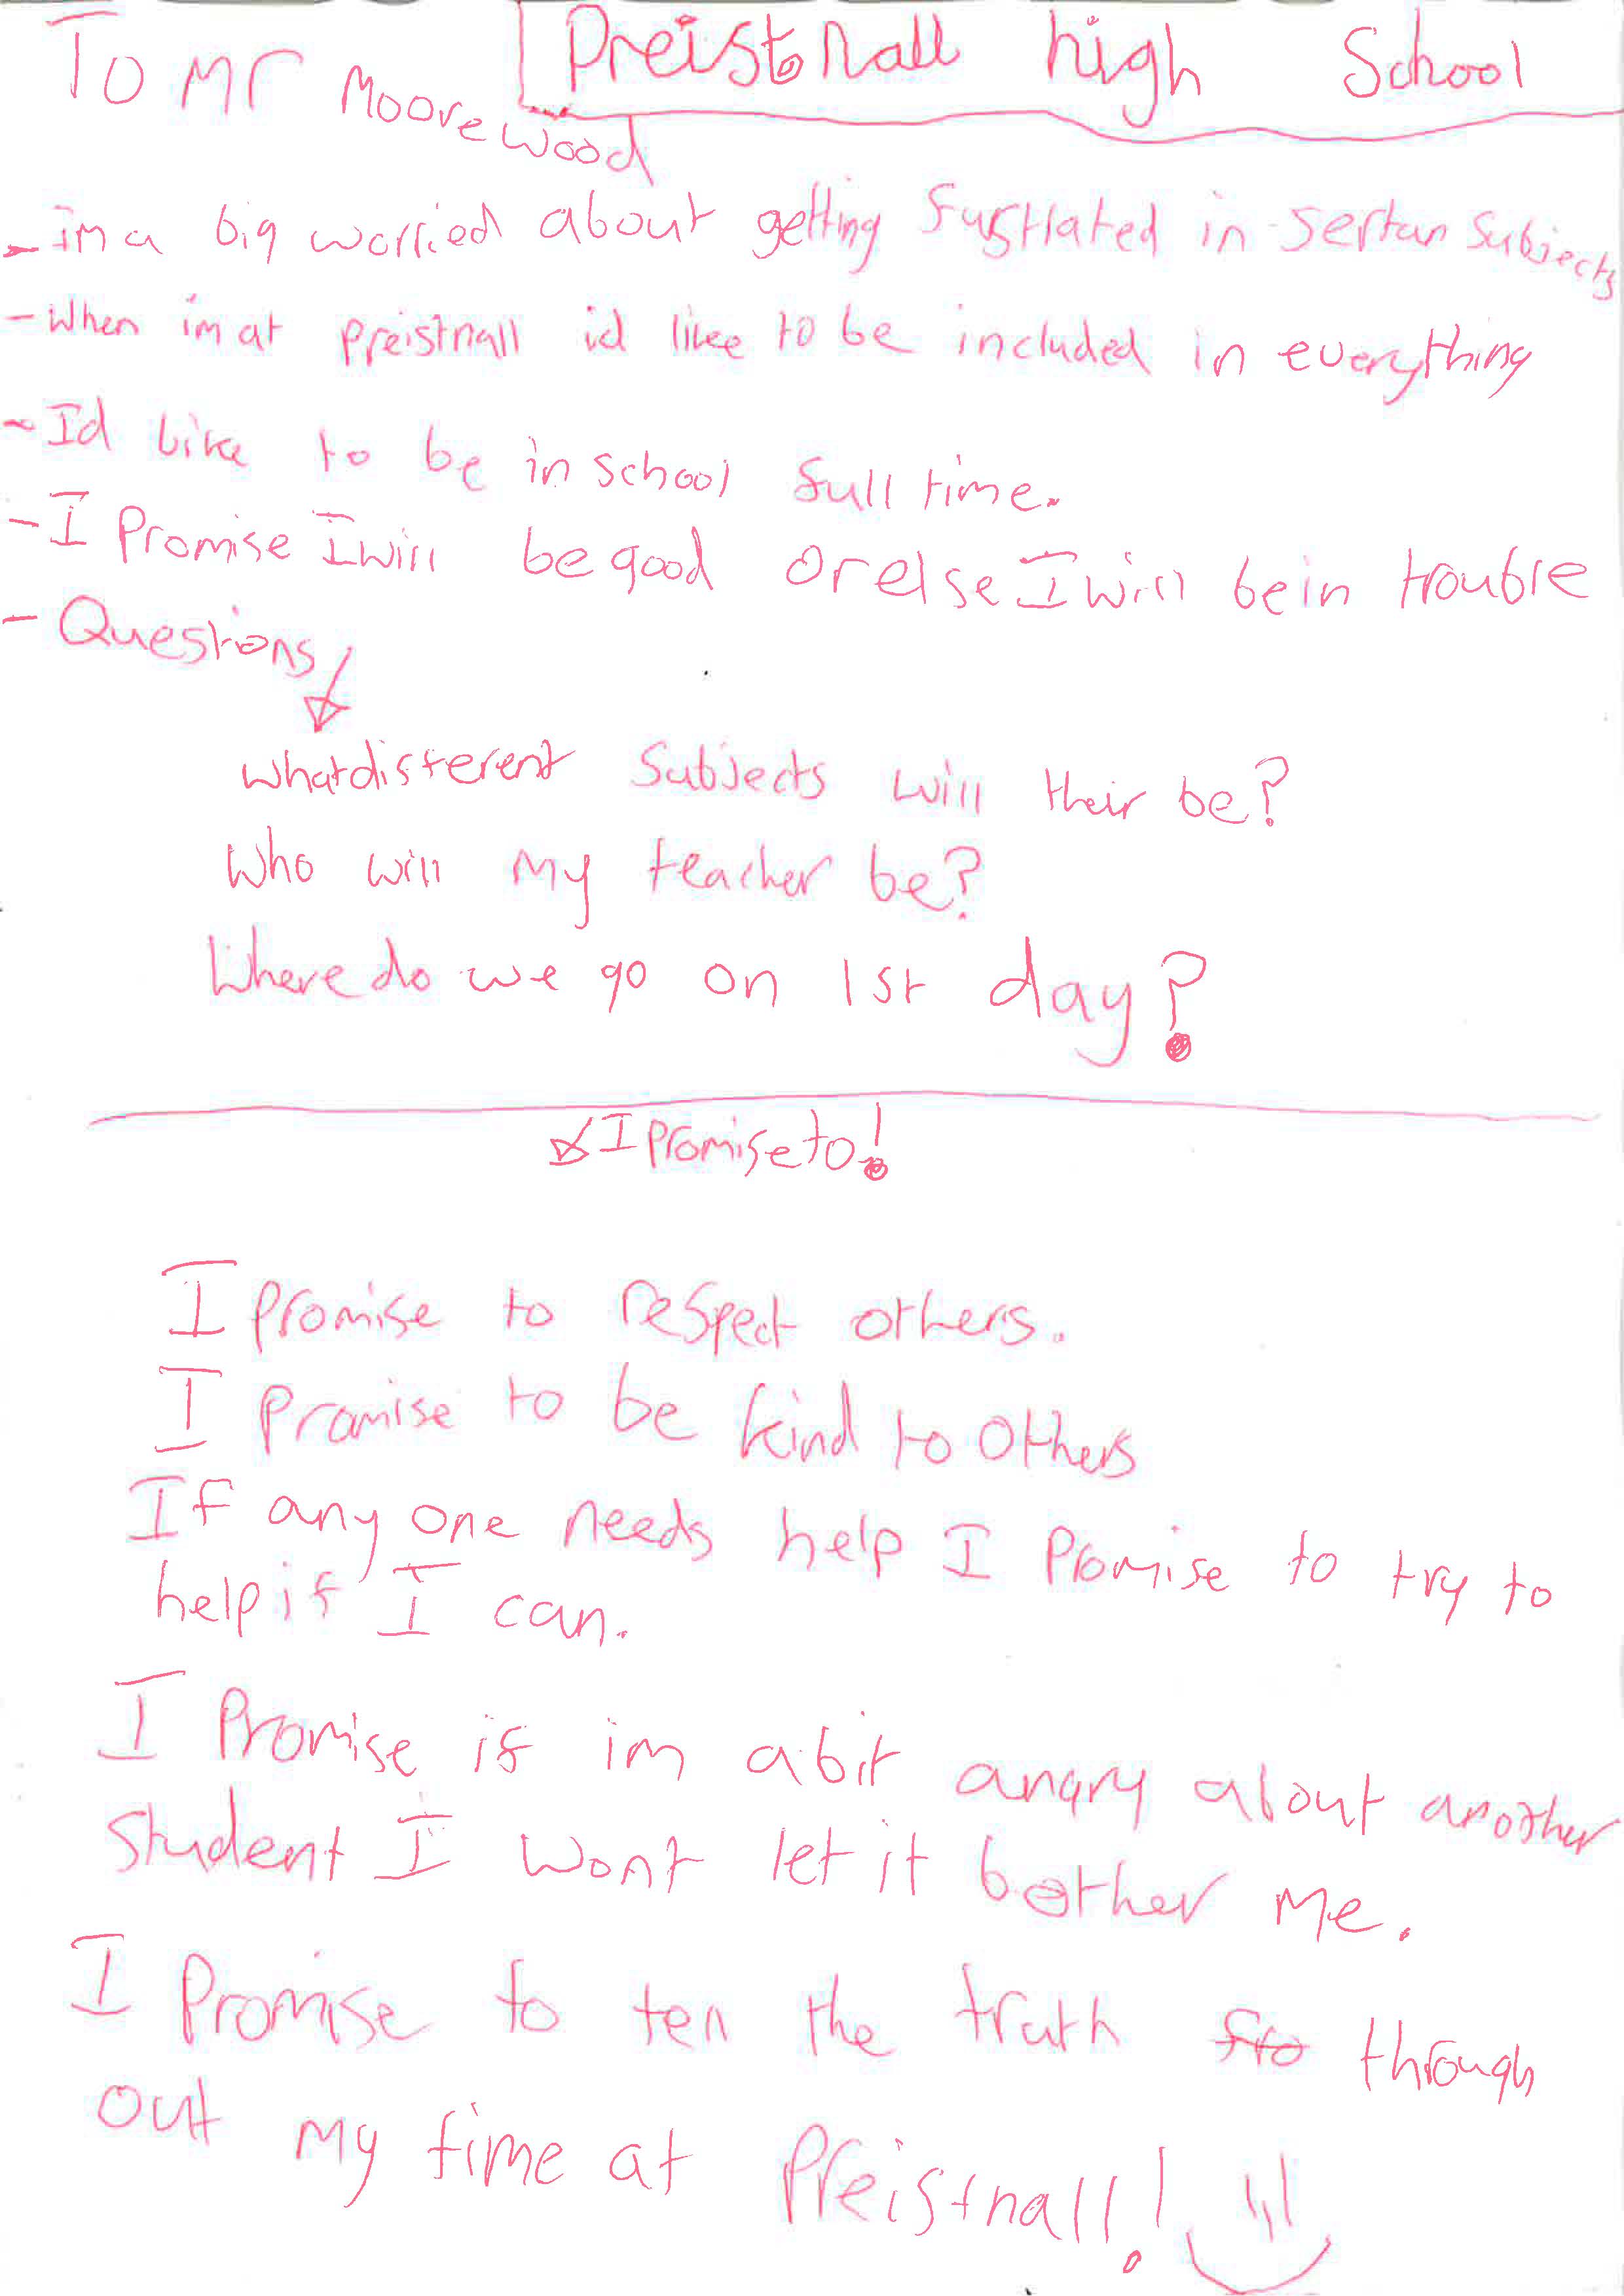 To Mr Moorewood
Preistnall high School
- im a big worried about getting fustrated in sertan subjects
- When im at preistnall id like to be included in everything
- Id like to be in school full time.
- I Promise I will be good or else I will be in trouble
- Questions
What different Subjects will their be?
Who will My teacher be?
Where do we go on 1st day?
I promise to!
I promise to respect others.
I promise to be kind to others
If any one needs help I Promise to try to
help if I can.
I Promise if im a bit angry about another
student I wont let it bother me.
I Promise to tell the truth fro through
out my time at Preistnall!